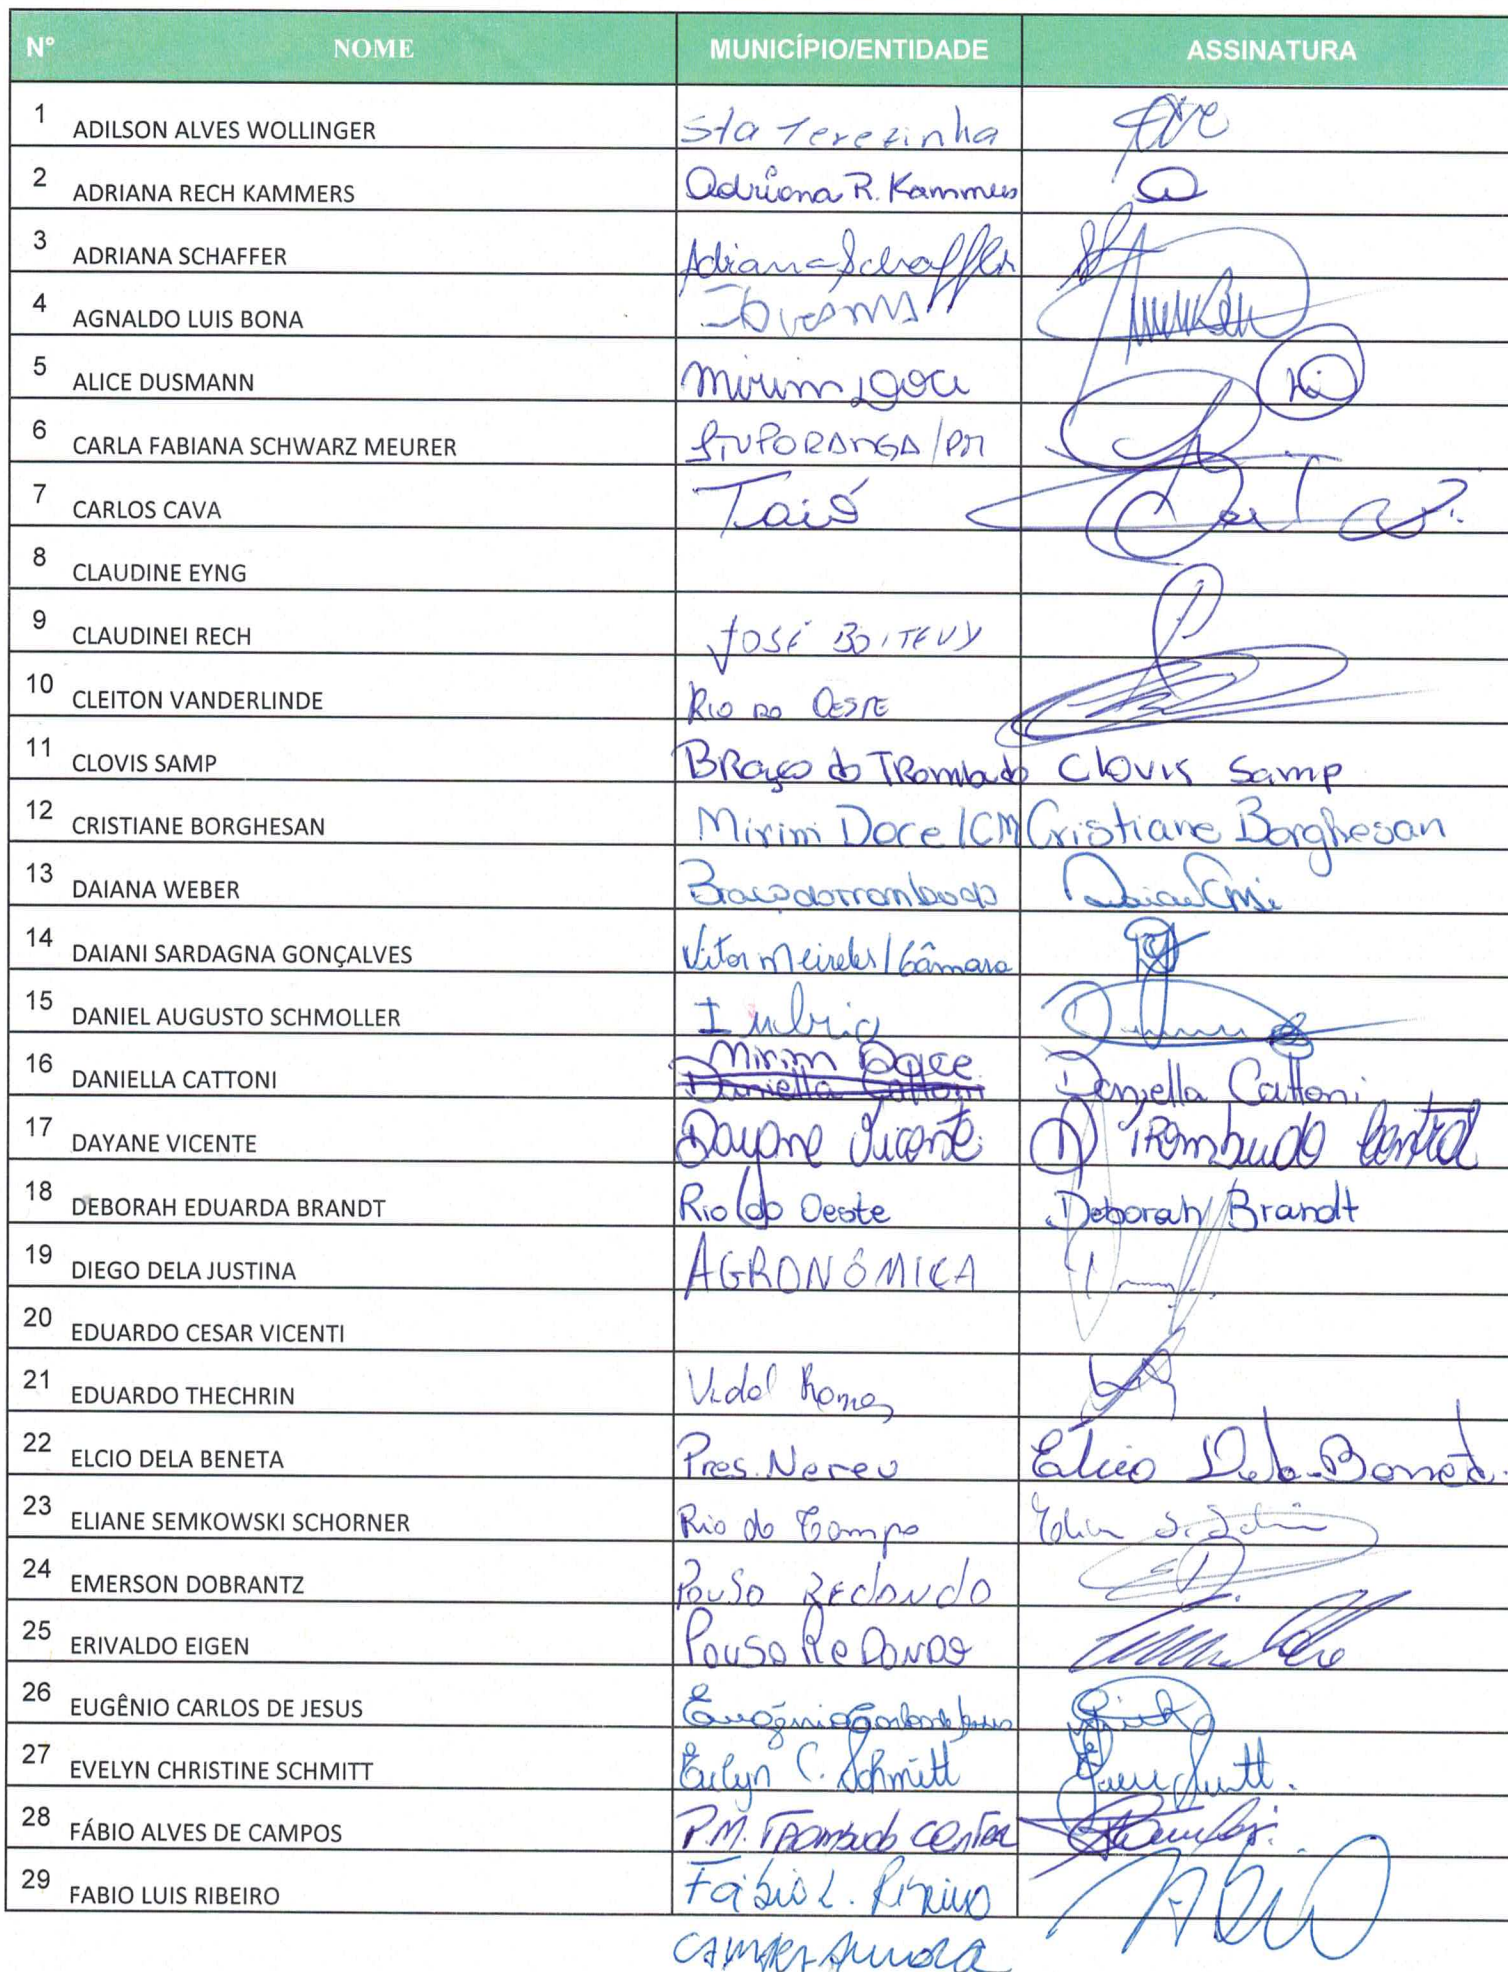 Nº NOME MUNICÍPIO/ENTIDADE ASSINATURA
1 ADILSON ALVES WOLLINGER Sta Terezinha
2 ADRIANA RECH KAMMERS Adriana R. Kammers
3 ADRIANA SCHAFFER Adriana Schaffer
4 AGNALDO LUIS BONA
5 ALICE DUSMANN Mirim
6 CARLA FABIANA SCHWARZ MEURER ITUPORANGA/PM
7 CARLOS CAVA Taió
8 CLAUDINE EYNG
9 CLAUDINEI RECH JOSÉ BOITEUX
10 CLEITON VANDERLINDE RIO DO OESTE
11 CLOVIS SAMP BRaço do TRombudo Clovis Samp
12 CRISTIANE BORGHESAN Mirim Doce/CM Cristiane Borghesan
13 DAIANA WEBER Braço do Trombudo
14 DAIANI SARDAGNA GONÇALVES Vitor Meireles/Câmara
15 DANIEL AUGUSTO SCHMOLLER Imbuia
16 DANIELLA CATTONI Mirim Doce Daniella Cattoni
Daniella Cattoni
17 DAYANE VICENTE Dayane Vicente Trombudo Central
18 DEBORAH EDUARDA BRANDT Rio do Oeste Deborah Brandt
19 DIEGO DELA JUSTINA AGRONÔMICA
20 EDUARDO CESAR VICENTI
21 EDUARDO THECHRIN Vidal Ramos
22 ELCIO DELA BENETA Pres. Nereu Elcio Dela Beneta
23 ELIANE SEMKOWSKI SCHORNER Rio do Campo
24 EMERSON DOBRANTZ Pouso Redondo
25 ERIVALDO EIGEN Pouso Redondo
26 EUGÊNIO CARLOS DE JESUS Eugênio Carlos de Jesus
27 EVELYN CHRISTINE SCHMITT Evelyn C. Schmitt
28 FÁBIO ALVES DE CAMPOS P.M. Trombudo Central
29 FABIO LUIS RIBEIRO Fábio L. Ribeiro FABIO
Aurora